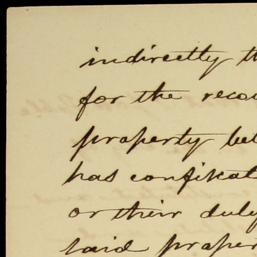 indirectly th
for the reco
property bel
has confiscat
or their duly
said proper